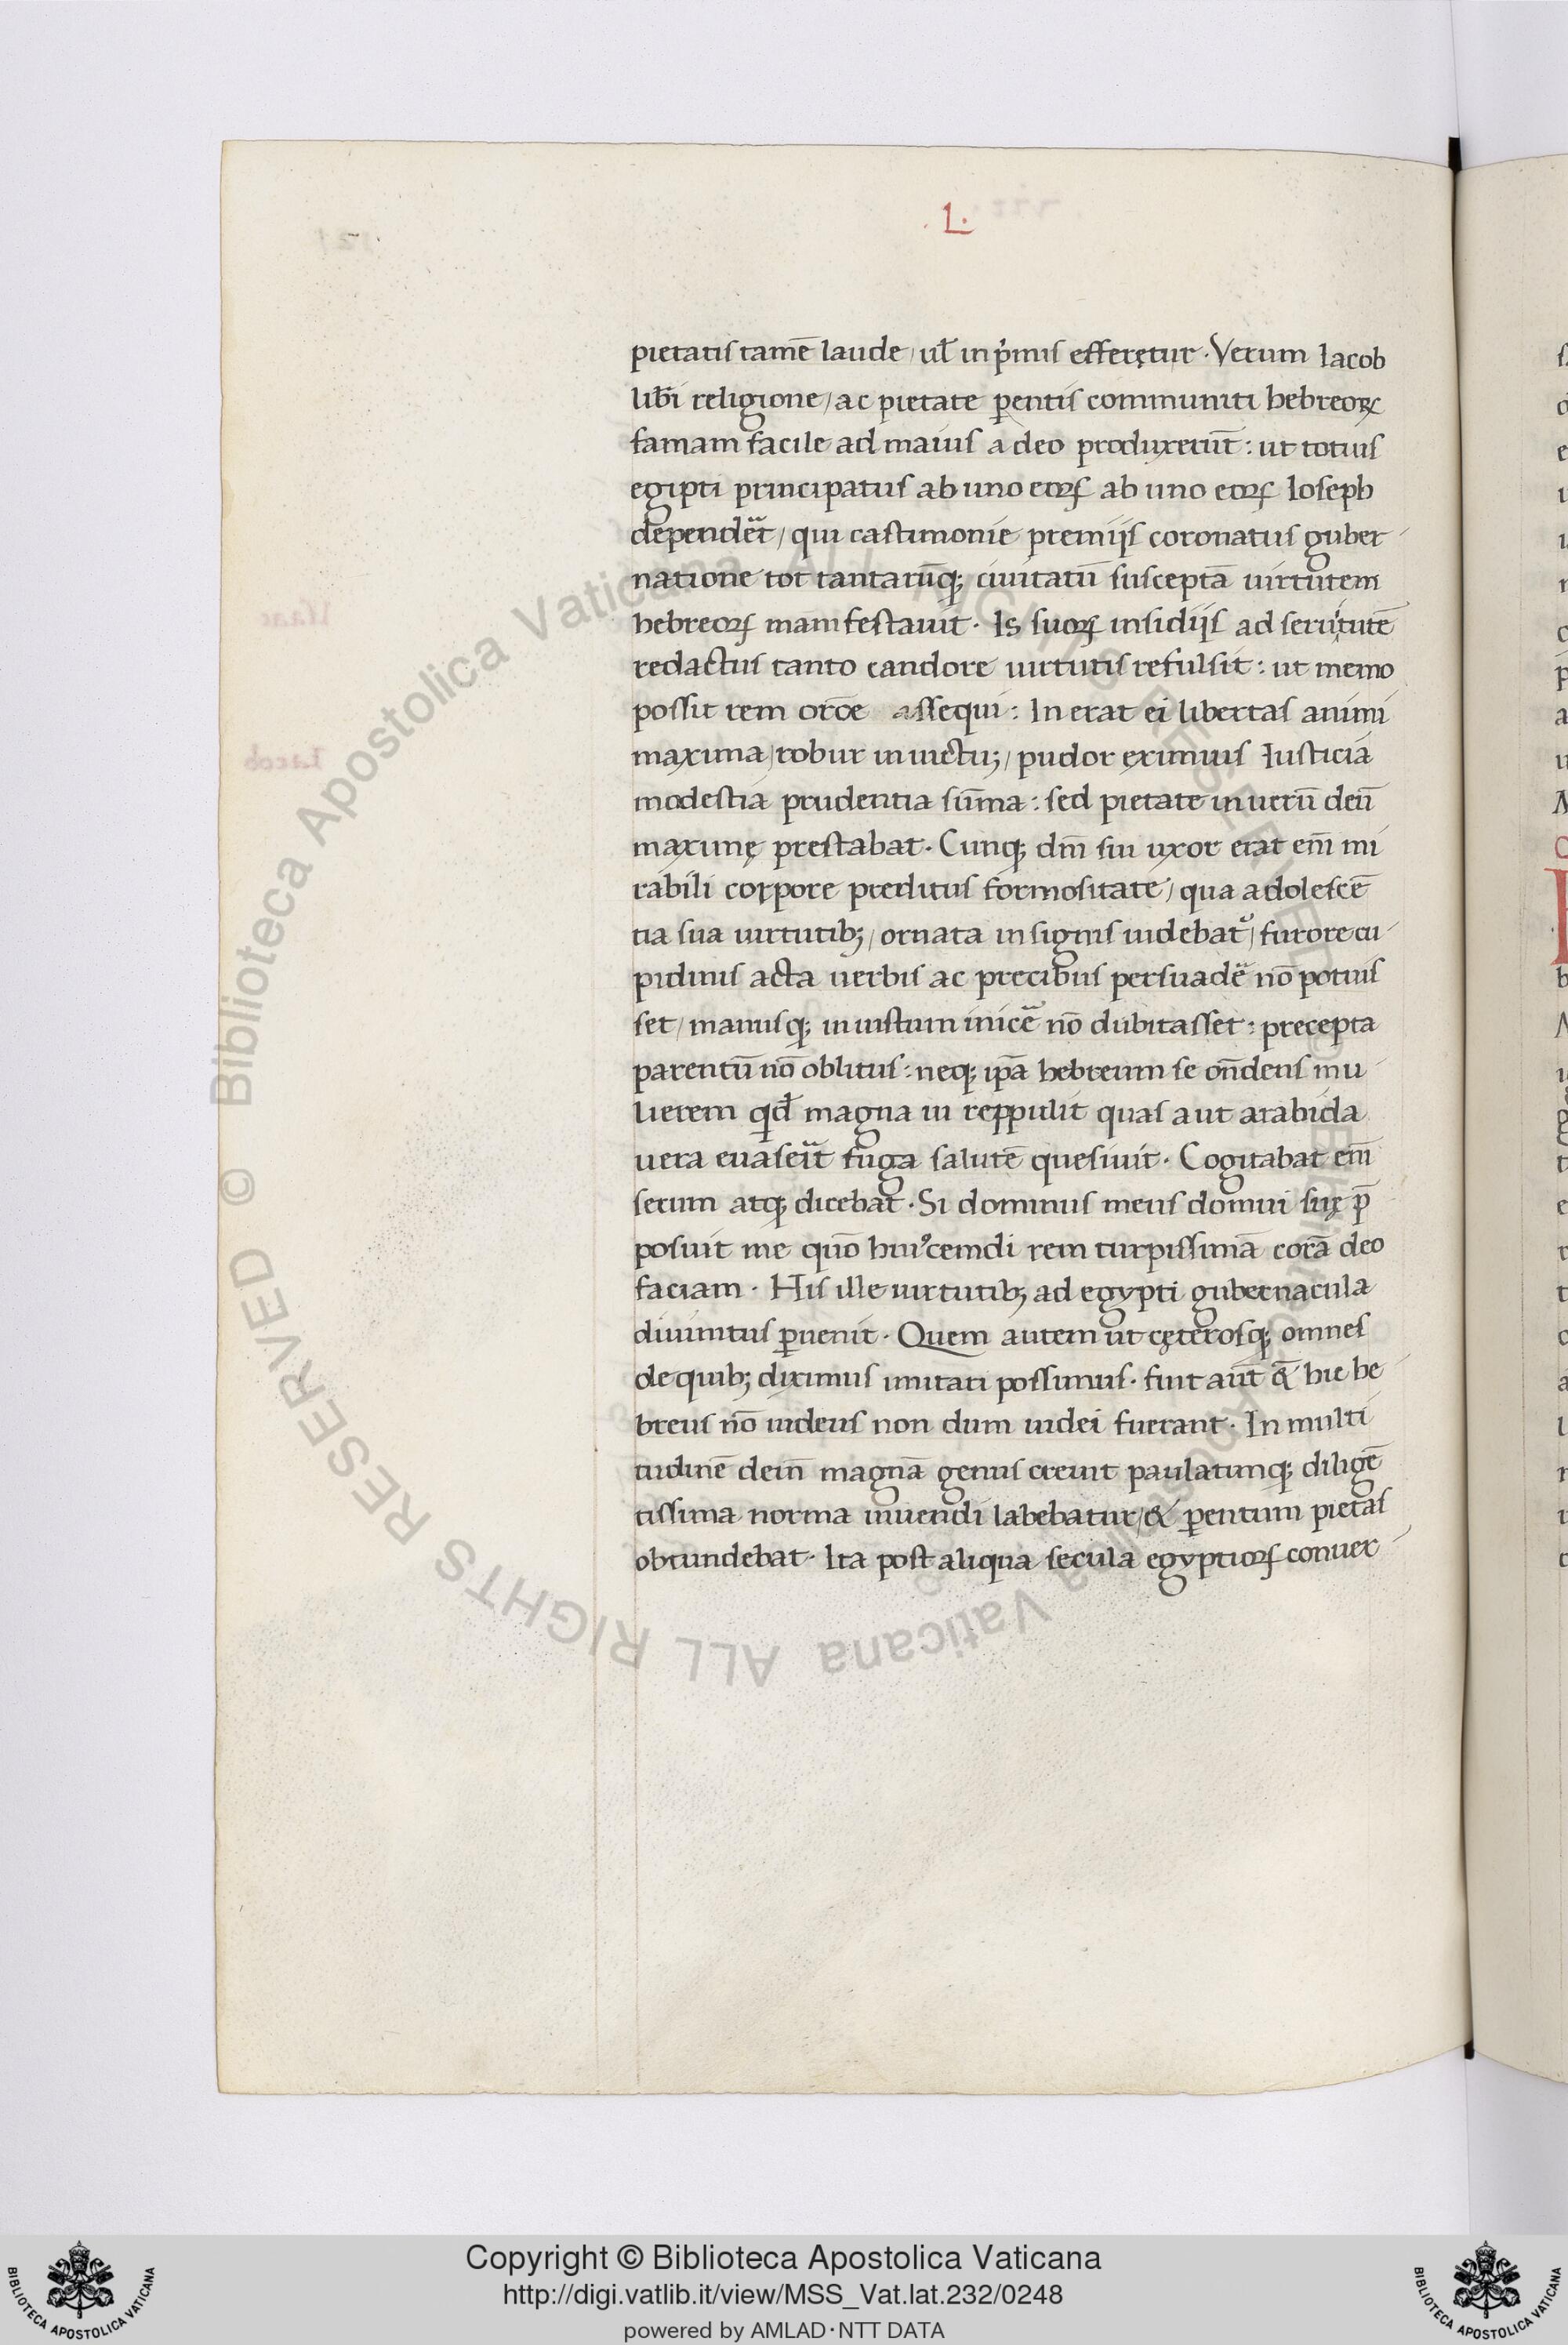 .L.
pietatis tamē laude / ul̄ in p̓mis efferętur · Verum Iacob
lib̄i religione / ac pietate ꝑentis communiti hebreoꝝ
famam facile ad maius a deo produxerūt : ut totius
egipti principatus ab uno eoꝝ ab uno eoꝝ Ioseph
dependēt / qui castimonie premijs coronatus guber
natione tot tantarūq; ciuitatū susceptā uirtutem
hebreoꝝ manifestauit · Is suoꝝ insidijs ad seruitutē
redactus tanto candore uirtutis refulsit : ut nemo
possit rem orōe assequi : In erat ei libertas animi
maxima / robur inuictuꝫ / pudor eximius Iusticia
modestia prudentia sūma : sed pietate in uerū deū
maximę prestabat · Cunq; dn̄i sui uxor erat eni̅ mi
rabili corpore preditus formositate / qua adolescē
tia sua uirtutibꝫ / ornata insignis uidebat᷑ / furore cu
pidinis acta uerbis ac precibus persuadē nō potuis
set / manusq; in iustum inicē nō dubitasset : precepta
parentū nō oblitus : neq; ip̄a hebreum se on̄dens mu
lierem qd̄ magna ui reppulit quas aut a rabida
uera euaseīt fuga salutē quesiuit · Cogitabat eni̅
secum atq; dicebat · Si dominus meus domui suę p̄
posuit me quō huiꝰcemdi rem turpissimā corā deo
faciam · His ille uirtutibꝫ ad egypti gubernacula
diuinitus ꝑuenit · Quem autem ut cęterosq; omnes
de quibꝫ diximus imitari possimus · fuit aūt & hic he
breus nō iudeus non dum iudei fuerant · In multi
tudinē dein̄ magnā genus creuit paulatimq; diligē
tissima norma uiuendi labebatur / & ꝑentum pietas
obtundebat · Ita post aliqua secula egyptioꝝ conuer
Copyright © Biblioteca Apostolica Vaticana
http://digi.vatlib.it/view/MSS_Vat.lat.232/0248
powered by AMLAD·NTT DATA
BIBLIOTECA APOSTOLICA VATICANA
BIBLIOTECA APOSTOLICA VATICANA
© Biblioteca Apostolica Vaticana ALL RIGHTS RESERVED © Biblioteca Apostolica Vaticana ALL RIGHTS RESERVED